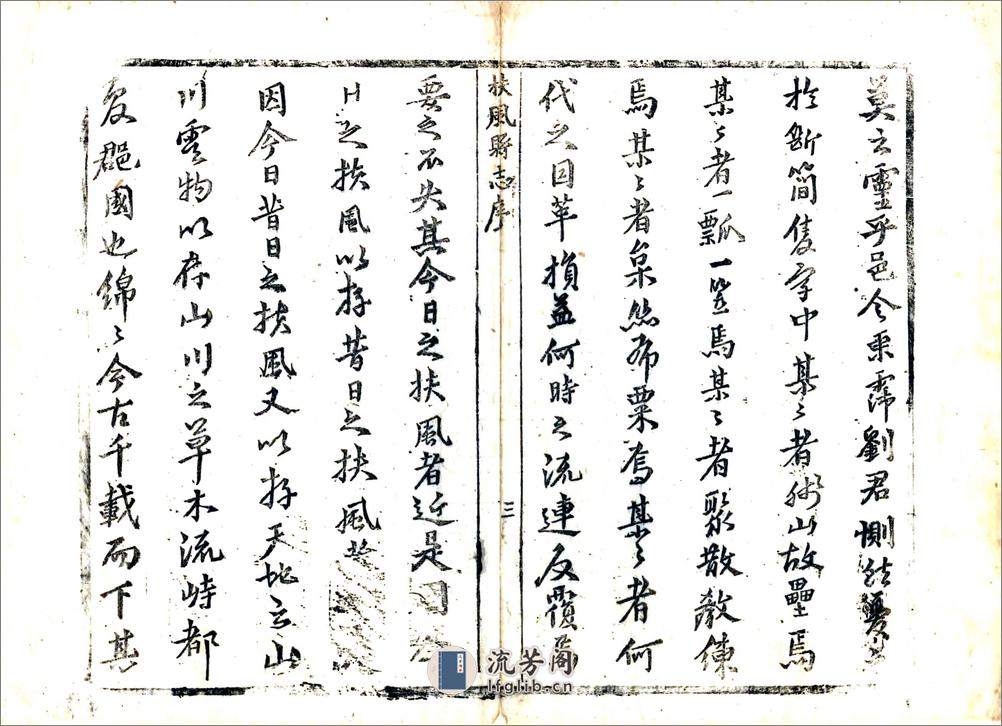 莫云靈乎邑令東霈劉君惻然憂之
於斷簡隻字中某〻者殘山故壘焉
某〻者一瓢一笠焉某〻者聚散教陳
焉某〻者枲絲布粟焉某〻者何
代之因革損益何時之流連反覆焉
扶風縣志序
三
要之不失其今日之扶風者近是因今
日之扶風以存昔日之扶風
因今日昔日之扶風又以存天地之山
川雲物以存山川之草木流峙都
爰郡國也綿〻今古千載而下其
流芳阁
lfglib.cn